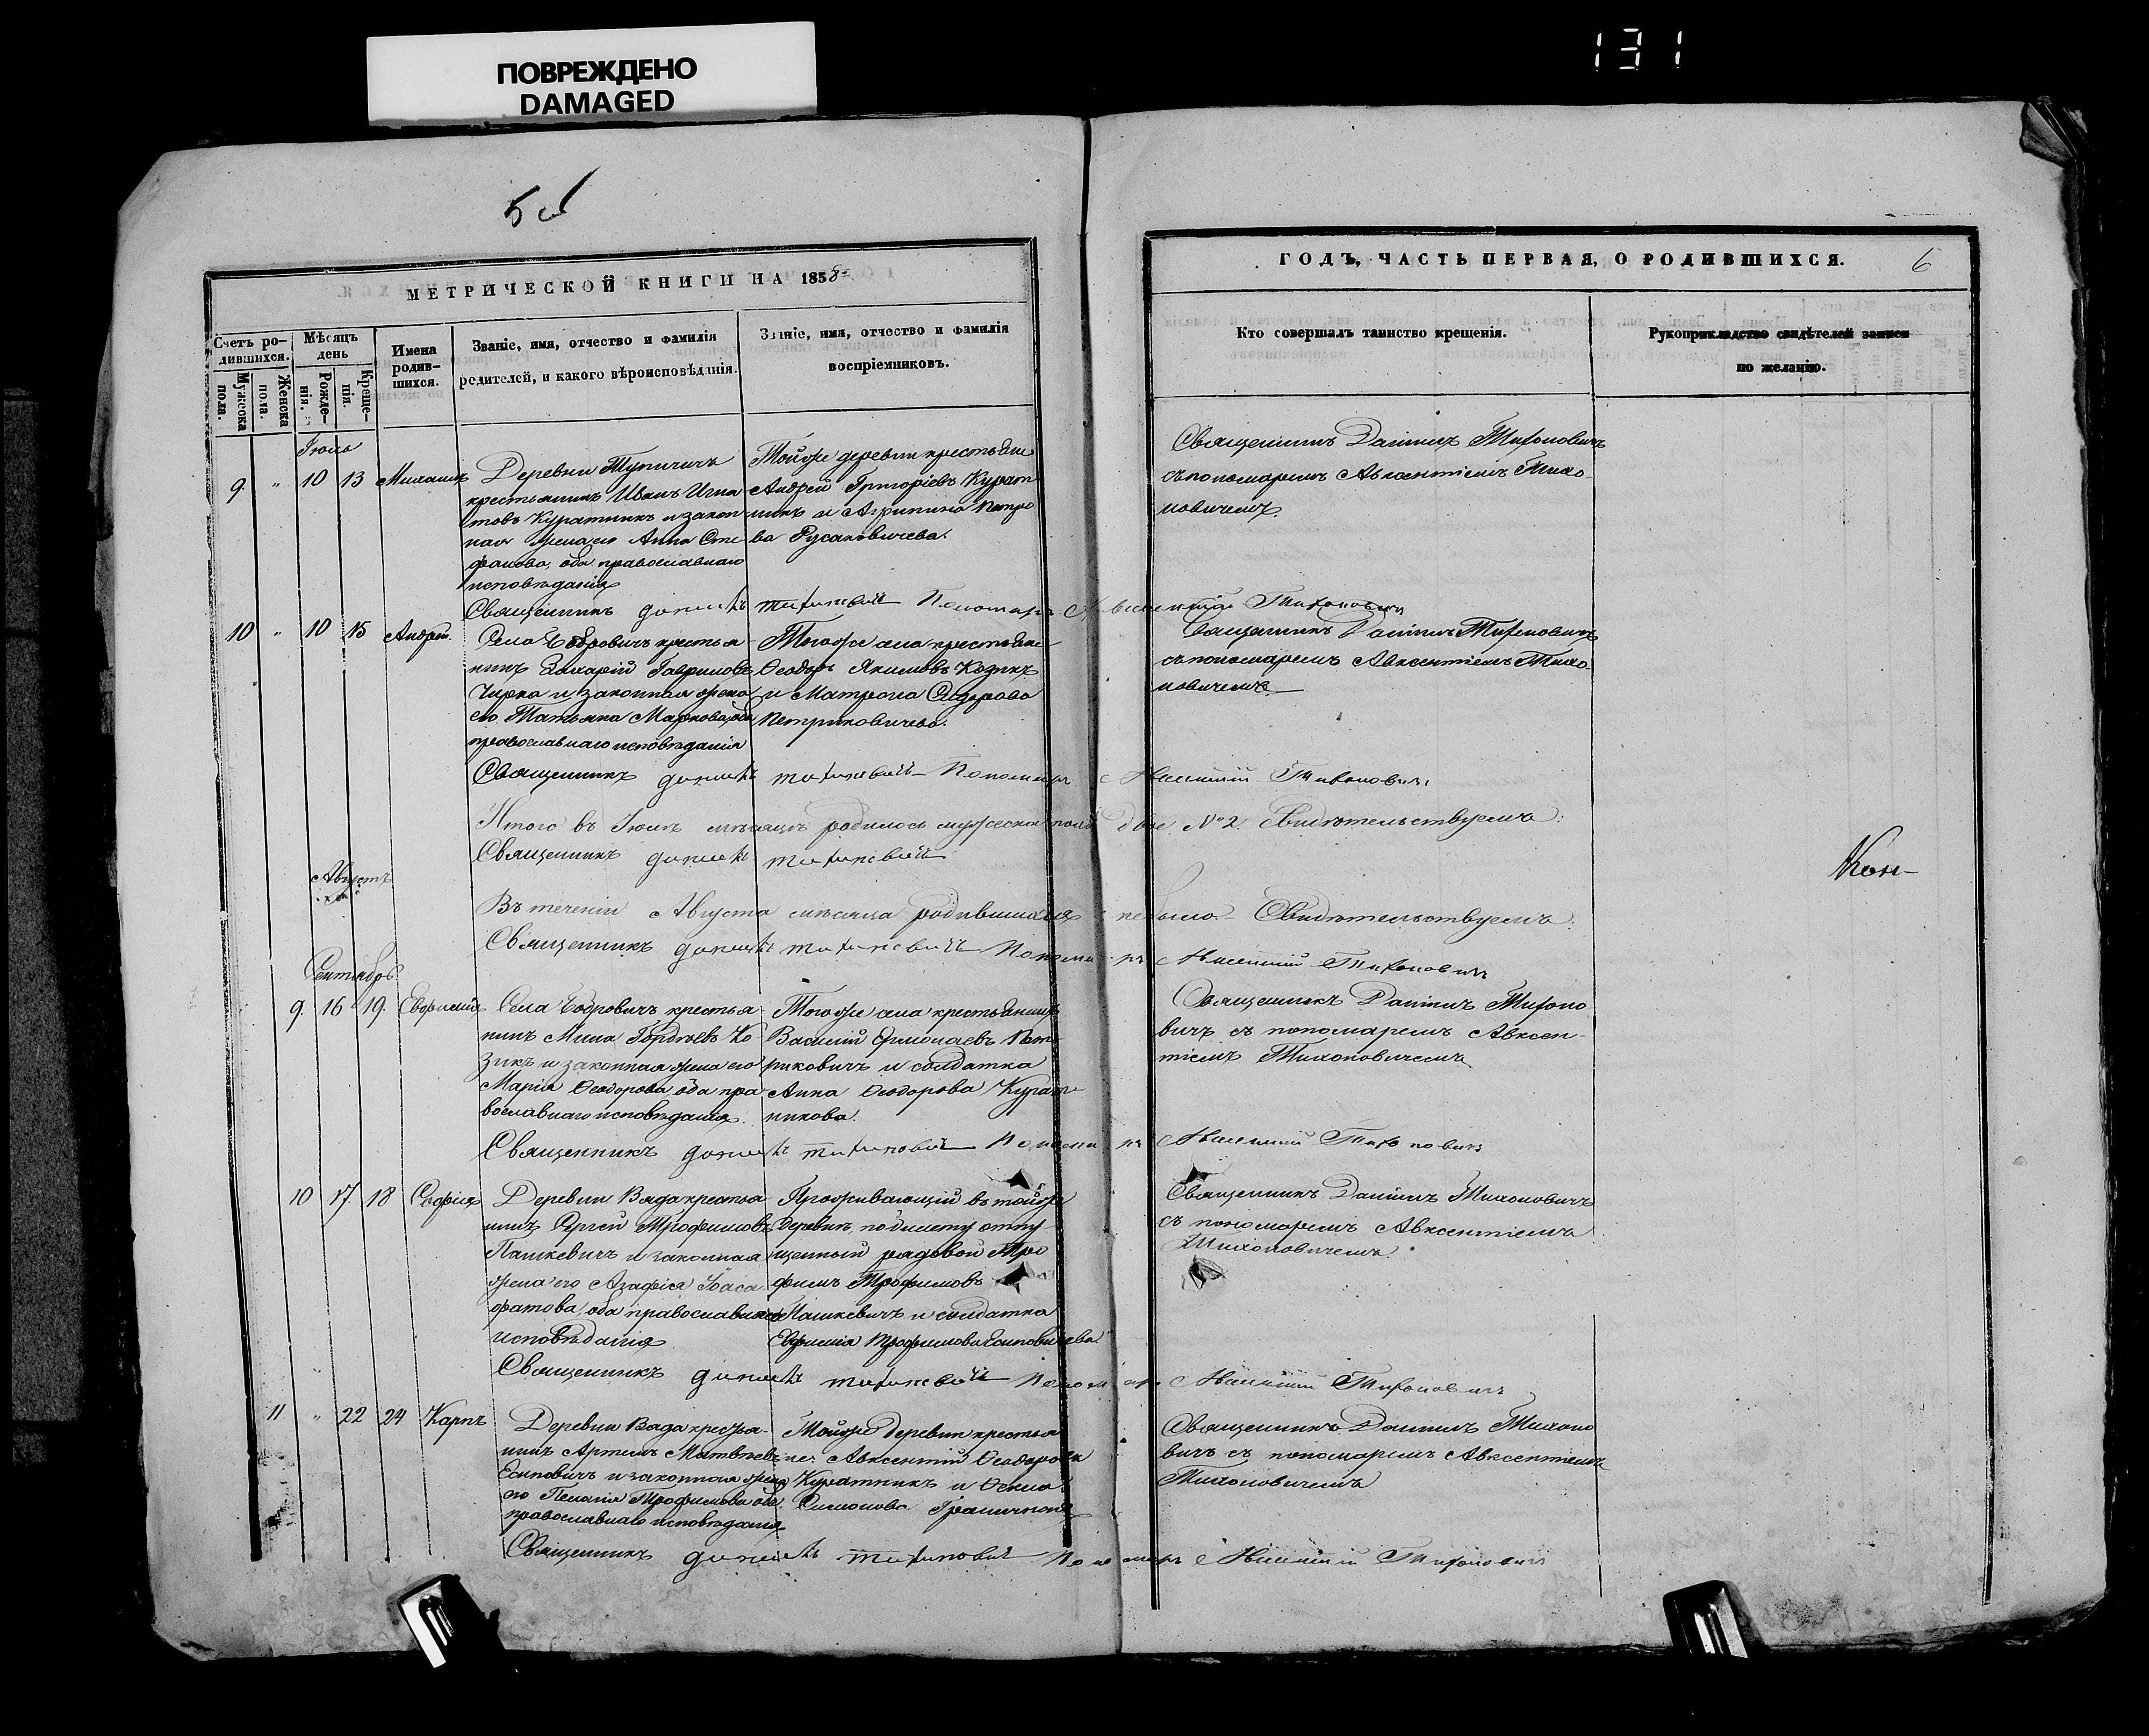 ПОВРЕЖДЕНО
DAMAGED
131
5 об
МЕТРИЧЕСКОЙ КНИГИ НА 1858
ГОДЪ, ЧАСТЬ ПЕРВАЯ, О РОДИВШИХСЯ.
6
Счетъ ро-
дившихся.
Мужеска
пола.
Женска
пола.
Мѣсяцъ
день
Рожде-
нія.
Креще-
нія.
Имена
родив-
шихся.
Званіе, имя, отчество и фамилія
родителей, и какого вѣроисповѣданія.
Званіе, имя, отчество и фамилія
воспріемниковъ.
Кто совершалъ таинство крещенія.
Рукоприкладство свидѣтелей записи
по желанію.
Іюль
9. " 10 13 Михаилъ
Деревни Тупичичъ
крестьянинъ Иванъ Игна
товъ Куратникъ и закон
ная жена его Анна Сте
фанова, оба православнаго
исповѣданія
Тойже деревни крестьяни
Андрей Григоріевъ Курат
никъ и Агрипина Петро
ва Русаковичева.
Священникъ Даніилъ Тихоновичъ
съ пономаремъ Авксентіемъ Тихо
новичемъ
Священникъ Даніилъ Тихоновичъ Пономарь Авксентій Тихоновичъ
10 " 10 15 Андрей.
Села Бобровичъ крестья
нинъ Захарій Гавриловъ
Чирка и законная жена
его Татьяна Маркова, оба
православнаго исповѣданія
Тогоже села крестьяни
Ѳеодоръ Якимовъ Козикъ
и Матрона Сидорова
Петриковичева.
Священникъ Даніилъ Тихоновичъ
съ пономаремъ Авксентіемъ Тихо
новичемъ
Священникъ Даніилъ Тихоновичъ Пономарь Авксентій Тихоновичъ
Итого въ Іюлѣ мѣсяцѣ родилось мужеска пола двое № 2. Свидѣтельствуемъ:
Священникъ Даніилъ Тихоновичъ
Кон-
Августъ
Въ теченіи Августа мѣсяца родившихся небыло Свидѣтельствуемъ:
Священникъ Даніилъ Тихоновичъ Пономарь Авксентій Тихоновичъ
Сентябрь
9. 16 19. Евфимія
Села Бобровичъ крестья
нинъ Мина Гордѣевъ Ко
зикъ и законная жена его
Марія Ѳеодорова, оба пра
вославнаго исповѣданія.
Тогоже села крестьянинъ
Василій Ермолаевъ Пет
риковичъ и солдатка
Анна Ѳеодорова Курат
никова.
Священникъ Даніилъ Тихоно
вичъ съ пономаремъ Авксен-
тіемъ Тихоновичемъ
Священникъ Даніилъ Тихоновичъ Пономарь Авксентій Тихоновичъ
10 17 18 Софія
Деревни Вяда крестья
нинъ Сергей Трофимовъ
Пашкевичъ и законная
жена его Агафія Іоаса
фатова, оба православнаго
исповѣданія
Проживающій въ тойже
деревнѣ, по билету отпу
щенный рядовой Тро
фимъ Трофимовъ
Пашкевичъ и солдатка
Евфимія Трофимова Есиповичева.
Священникъ Даніилъ Тихоновичъ
съ пономаремъ Авксентіемъ
Тихоновичемъ.
Священникъ Даніилъ Тихоновичъ Пономарь Авксентій Тихоновичъ
11 " 22 24 Карпъ
Деревни Вяда крестья-
нинъ Артемъ Матвѣевъ
Есиповичъ и законная жена
его Пелагія Трофимова оба
православнаго исповѣданія
Тойже деревни крестья
не Авксентій Ѳеодоровъ
Куратникъ и Ѳекла
Симонова
Священникъ Даніилъ Тихоно
вичъ съ пономаремъ Авксентіемъ
Тихоновичемъ
Священникъ Даніилъ Тихоновичъ Пономарь Авксентій Тихоновичъ